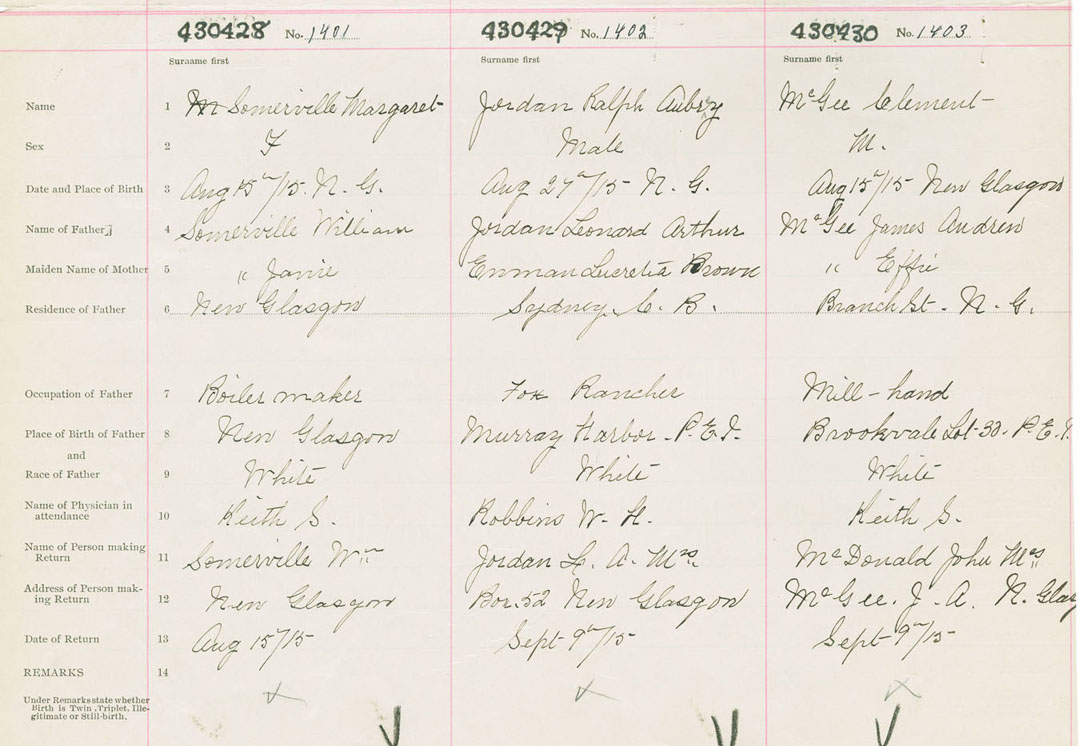 430428 No. 1401 430429 No. 1402 430430 No. 1403
Surname first Surname first Surname first
Name 1 Somerville Margaret Jordan Ralph Aubry McGee Clement
Sex 2 F Male M.
Date and Place of Birth 3 Aug 15th/15. N. G. Aug 27th/15 N. G. Aug 15th/15 New Glasgow
Name of Father 4 Somerville William Jordan Leonard Arthur McGee James Andrew
Maiden Name of Mother 5 " Janie Enman Lucretia Brown " Effie
Residence of Father 6 New Glasgow Sydney, C. B. Branch St. N. G.
Occupation of Father 7 Boiler maker Fox Rancher Mill-hand
Place of Birth of Father 8 New Glasgow Murray Harbor. P.E.I. Brookvale Lot-30. P.E.I.
and
Race of Father 9 White White White
Name of Physician in
attendance 10 Keith S. Robbins W. H. Keith S.
Name of Person making
Return 11 Somerville Wm Jordan L. A. Mrs McDonald John Mrs
Address of Person mak-
ing Return 12 New Glasgow Box.52 New Glasgow McGee. J. A. N. Glas
Date of Return 13 Aug 15/15 Sept 9th/15 Sept 9th/15
REMARKS 14
Under Remarks state whether
Birth is Twin, Triplet, Ille-
gitimate or Still-birth.